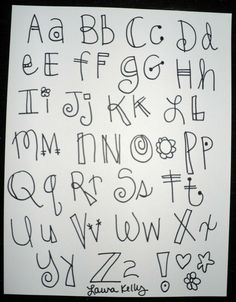 Aa Bb Cc Dd
eE fF gG Hh
Ii Jj Kk LL
Mm nN Oo Pp
Qq Rr Ss Tt
Uu Vv Ww Xx
Yy Zz !
Laura Kelly